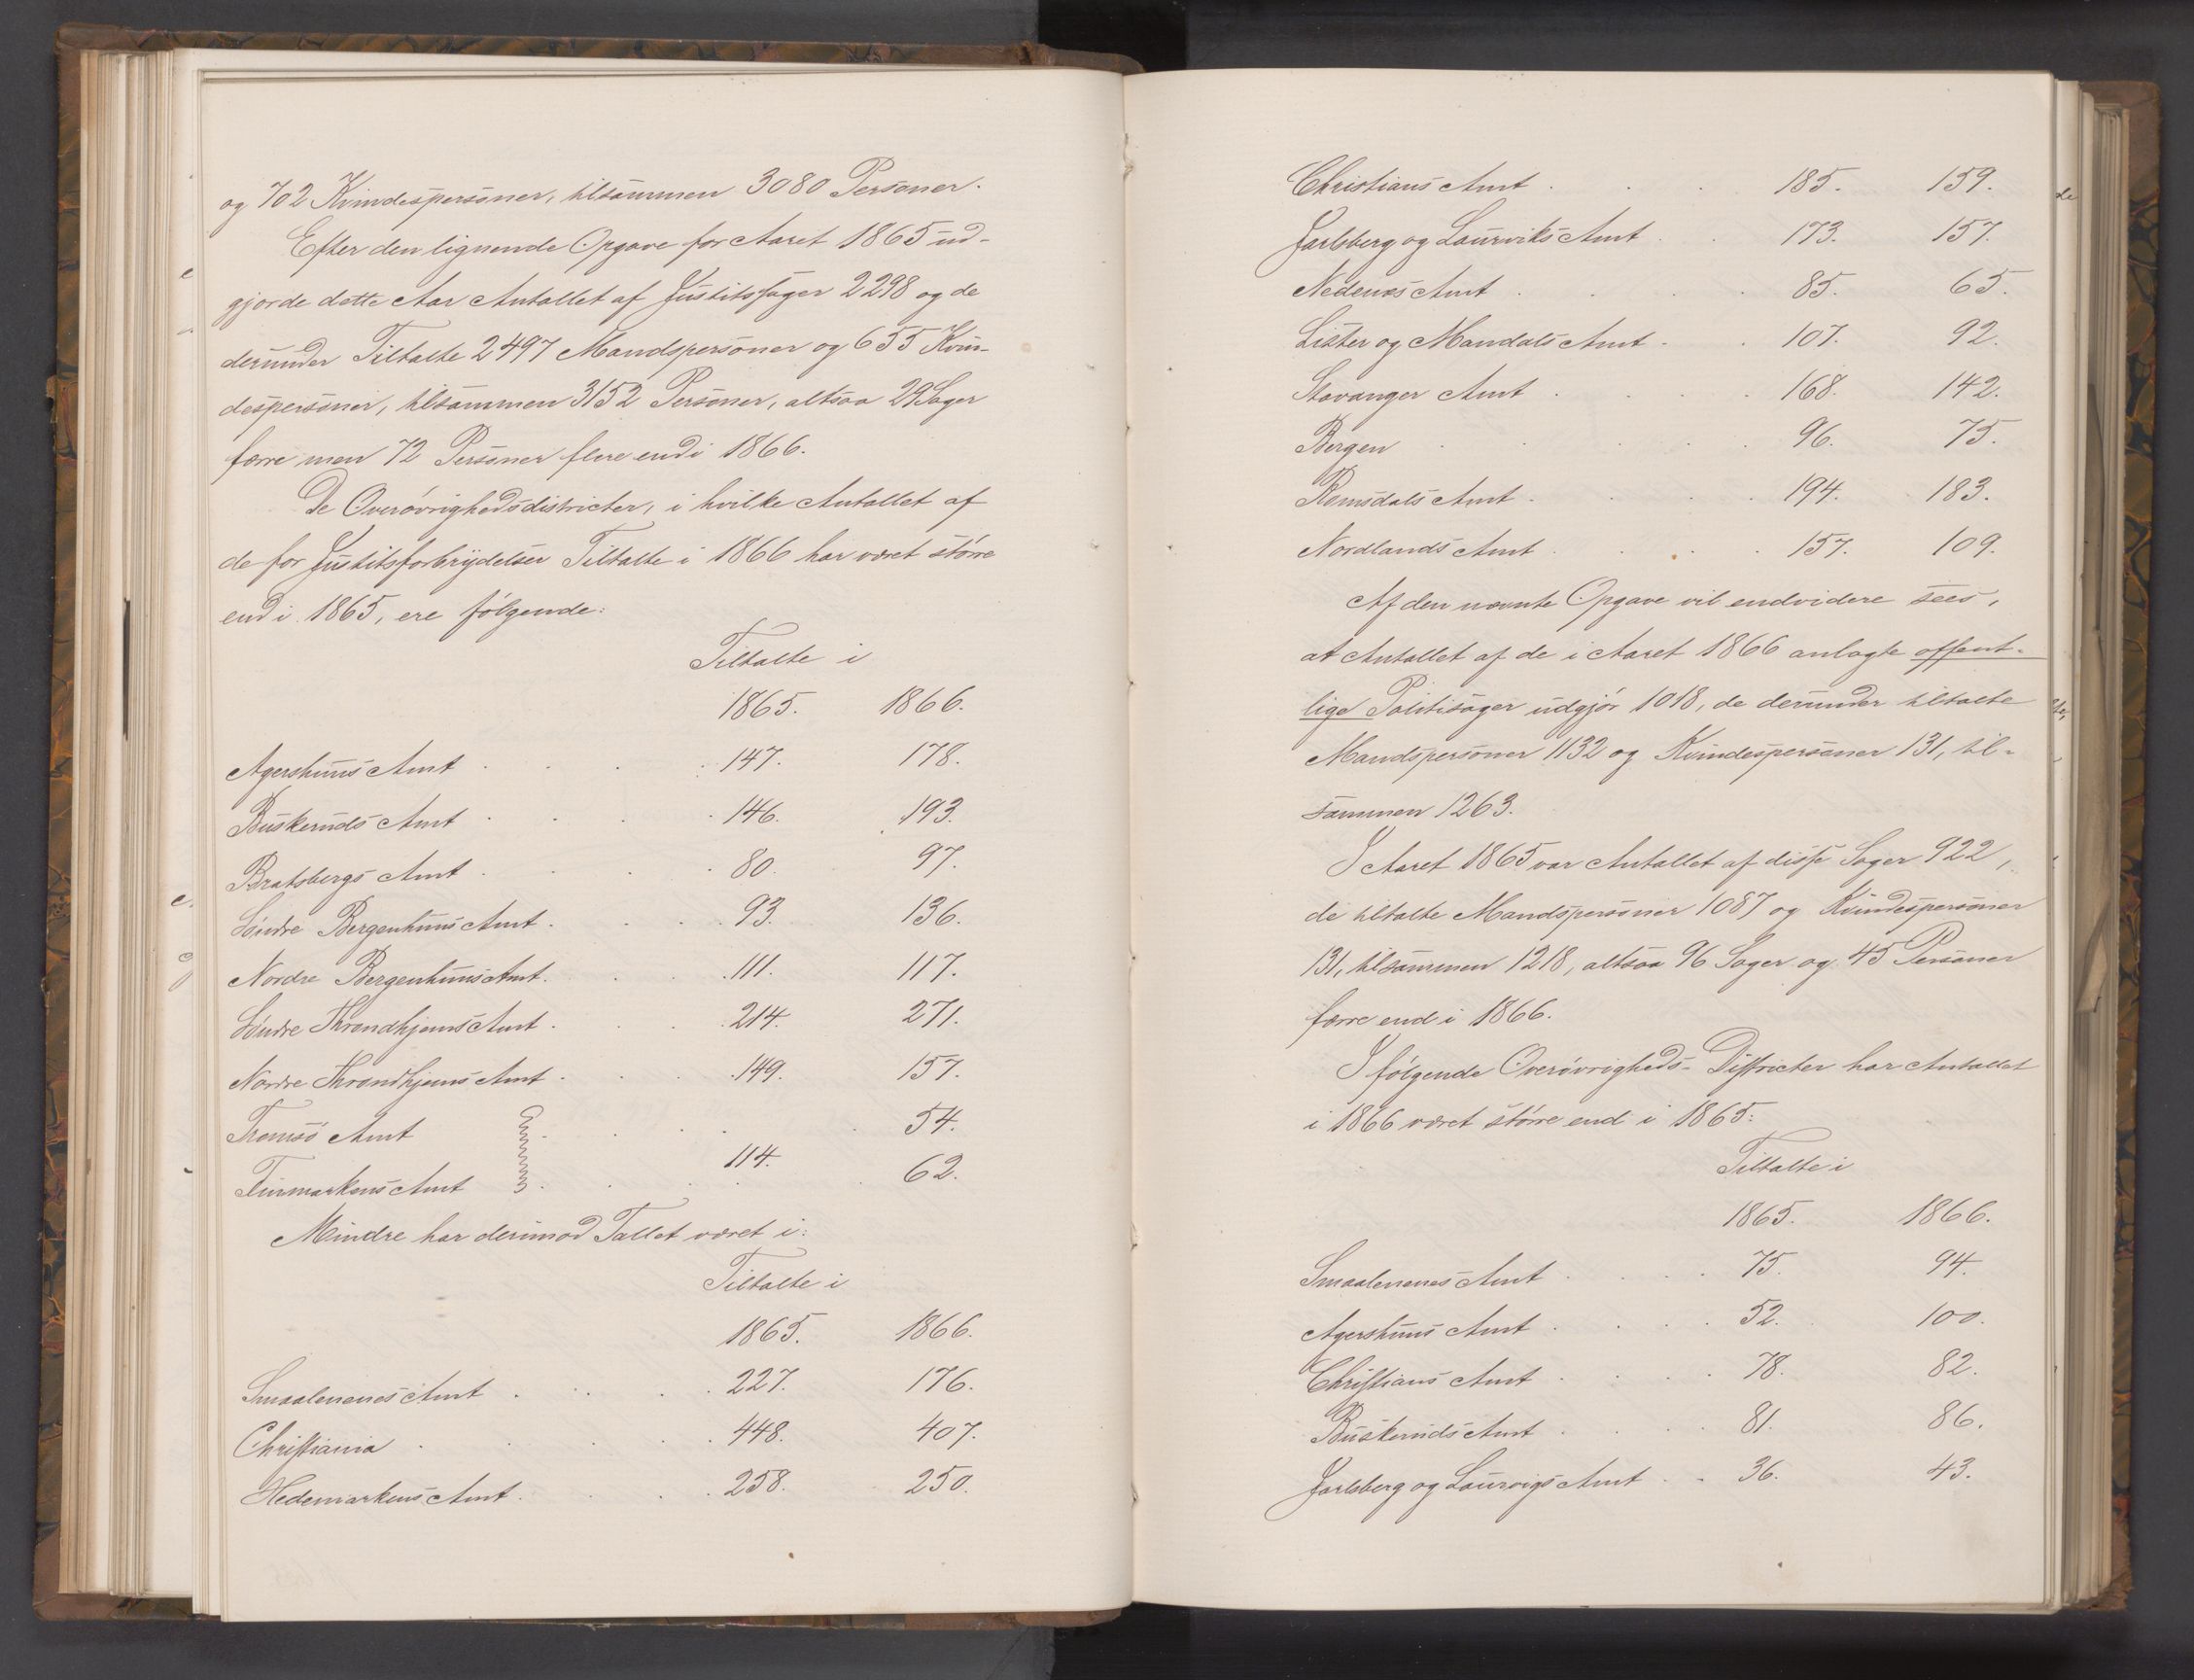 og 702 Kvindespersoner, tilsammen 3080 Personer.
Efter den lignende Opgave for Aaret 1865 ud-
gjorde dette Aar Antallet af Justitssager 2298 og de
derunder Tiltalte 2497 Mandspersoner og 655 Kvin-
despersoner, tilsammen 3152 Personer, altsaa 29 Sager
færre men 72 Personer flere end i 1866.
De Overøvrighedsdistricter, i hvilke Antallet af
de for Justitsforbrydelser Tiltalte i 1866 har været større
end i 1865, ere følgende:
Tiltalte i
1865. 1866.
Agershuus Amt . . . . 147. 178.
Buskeruds Amt . . . . 146. 193.
Bratsbergs Amt . . . . 80. 97.
Søndre Bergenhuus Amt . . . . 93. 136.
Nordre Bergenhuus Amt . . . 111. 117.
Søndre Throndhjems Amt . . . . 214. 271.
Nordre Throndhjems Amt . . . . 149. 157.
Tromsø Amt . . . . 54.
114.
Finmarkens Amt . . . . 62.
Mindre har derimod Tallet været i:
Tiltalte i
1865. 1866.
Smaalenenes Amt . . . . 227. 176.
Christiania . . . . 448. 407.
Hedemarkens Amt . . . . 258. 250.
Christians Amt . . . 185. 159.
Jarlsberg og Laurviks Amt . . 173. 157.
Nedenæs Amt . . . . 85. 65.
Lister og Mandals Amt . . 107. 92.
Stavanger Amt . . . . 168. 142.
Bergen . . . . 96. 75.
Romsdals Amt . . . . 194. 183.
Nordlands Amt . . . . 157. 109.
Af den nævnte Opgave vil endvidere sees,
at Antallet af de i Aaret 1866 anlagte offent-
lige Politisager udgjør 1018, de derunder tiltalte
Mandspersoner 1132 og Kvindespersoner 131, til-
sammen 1263.
I Aaret 1865 var Antallet af disse Sager 922,
de tiltalte Mandspersoner 1087 og Kvindespersoner
131, tilsammen 1218, altsaa 96 Sager og 45 Personer
færre end i 1866.
I følgende Overøvrigheds-Districter har Antallet
i 1866 været større end i 1865:
Tiltalte i
1865. 1866.
Smaalenenes Amt . . . . 75. 94.
Agershuus Amt . . . . 52. 100.
Christians Amt . . . . 78. 82.
Buskeruds Amt . . . . 81. 86.
Jarlsberg og Laurvigs Amt . . 36. 43.